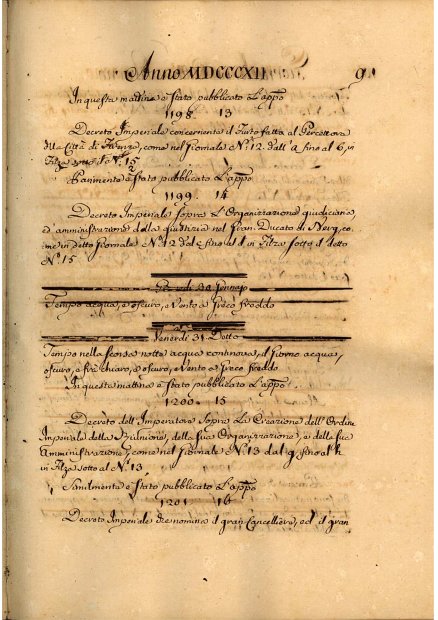 Anno MDCCCXII 9
In questa mattina è stato pubblicato l'appo
1198. 13
Decreto Imperiale concernente il furto fatto al Percettore
della Città di Firenze, come nel Giornale N.º 12. dall' a fino al 6, in
Filza sotto il N.º 15
2
Parimente è stato pubblicato l'appo
1199. 14
Decreto Imperiale sopra l'Organizzazione giudiciaria,
ed amministrazione della giustizia nel Gran Ducato di Berg, co
me in detto Giornale N.º 12 dal fino al in Filza sotto il detto
N.º 15
Giovedì 30 Gennajo
Tempo acqua, e oscuro, e Vento a Greco freddo
Venerdì 31 Detto
Tempo nella scorsa notte acqua continova, il giorno acqua,
oscuro, e chiaro, e oscuro, e Vento a Greco freddo
In questa mattina è stato pubblicato l'appo
1200. 15
Decreto dell'Imperatore sopra la Creazione dell'Ordine
Imperiale della Riunione, della sua Organizzazione, e della sua
Amministrazione, come nel Giornale N.º 13 dal g. fino al h
in Filza sotto al N.º 13
Similmente è stato pubblicato l'appo
1201 16
Decreto Imperiale che nomina il gran Cancelliere, ed il gran